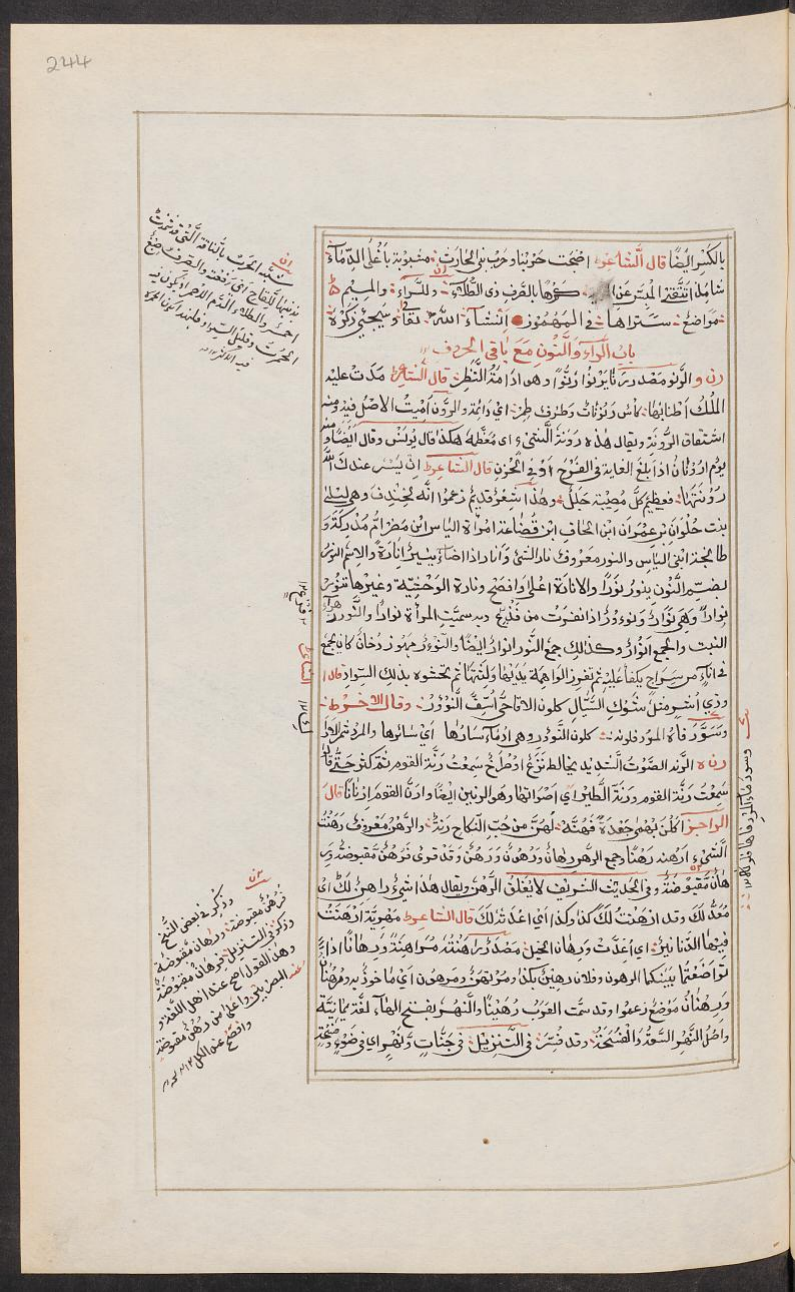 244
بالكسر ايضا قال الشاعر اضحت حربنا وحرب بني الحارث مشبوبة باغلى الدماء
شامذا تتقي المبس عن كرها بالصرف ذي الطلاء وللراء والميم
مواضع ستراها في المهموز انشاء الله تعالى وسيجئي ذكره
باب الراء والنون مع باقي الحروف
رن و الرنو مصدر رنا يرنوا رنوا وهى ادامة النظر قال الشاعر مدت عليه
الملك اطنابها كاس رنوناة وطرف طمر اي دائمة والرون اميت الاصل فيه ومنه
اشتقاق الرونة ويقال هذه رونة الشيء اى معظمه هكذا قال يونس وقال ايضا و
يوم ارونان اذا بلغ الغاية في الفرح او في الحزن قال الشاعر ان يسر عندك الله
رونتها فعظيم كل مصيبة جلل وهذا شعر قديم زعموا انه لخندف وهى ليلى
بنت حلوان بن عمران ابن الحاف ابن قضاعة امراة الياس ابن مضر ام مدركة و
طابخة ابنى الياس والنور معروف نار الشئ وانار اذا اضاء ينير انارة والاسم النور
بضم النون ينور نورا والانارة اعلى وافصح ونارة الوحشية وغيرها تنور
نوارا وهى نوار ونوءور اذا نفرت من فزع وبه سميت المرأة نوارا والنور زهرة
النبت والجمع انوار وكذالك جمع النور انوار ايضا والنوءر مهموز دخان كان يجمع
في اناء من سراج يكفأ عليه ثم تغرز الواهمة يديها ولثتها ثم تحشوه بذلك السواد قال
وذي اشر مثل شوك السيال كلون الاقاحي اسف النوور وقال الاخر
وسود فاه المرد فلونه كلون النوور وهي ادماء سارها اي سائرها والمرد ثمر الاراك
رن ه الرنه الصوت الشديد يخالط نزع او طرخ سمعت رنة القوم ثم كثر حتى قالوا
سمعت رنة القوم ورنة الطير اي اصواتها وهو الرنين ايضا وارن القوم ارنانا قال
الراجز اكلن بهمى جعدة فهنه لهن من حب النكاح رنه والرهن معروف رهنت
الشيء ارهنه رهنا وجمع الرهن رهان ورهون ورهن وقد قرى فرهن مقبوضة ور
هان مقبوضة وفي الحديث الشريف لا يغلق الرهن ويقال هذا شيء راهن لك اى
معد لك وقد ارهنت لك كذا وكذا اي اعددته لك قال الشاعر مهرية ارهنت
فيها الدنانير اي اعدت ورهان الخيل مصدر راهنته مراهنة ورهانا اذا
تواضعتما بينكما الرهون وفلان رهين بكذا ومرتهن ومرهون اي ما خوذ به ورهنان
ورهنان موضع زعموا وقد سمت العرب رهينا والنهر بفتح الهاء لغة يمانية
واصل النهر السعة والفسحة وقد فسر في التنزيل في جنات ونهر اي في ضوء وفسحة
شبه الحرب بالناقة التي قد شمذت
بذنبها للقاح اي رفعته والصرف صبغ
احمر والطلاء الدم
وذكر في بعض النسخ
فرهن مقبوضة ورهان مقبوضة
وذكر في التنزيل فرهان مقبوضة
وهذا القول اصح عند اهل اللغة و
البصريين واعلى من رهن مقبوضة
وافصح عند الكل ١٢